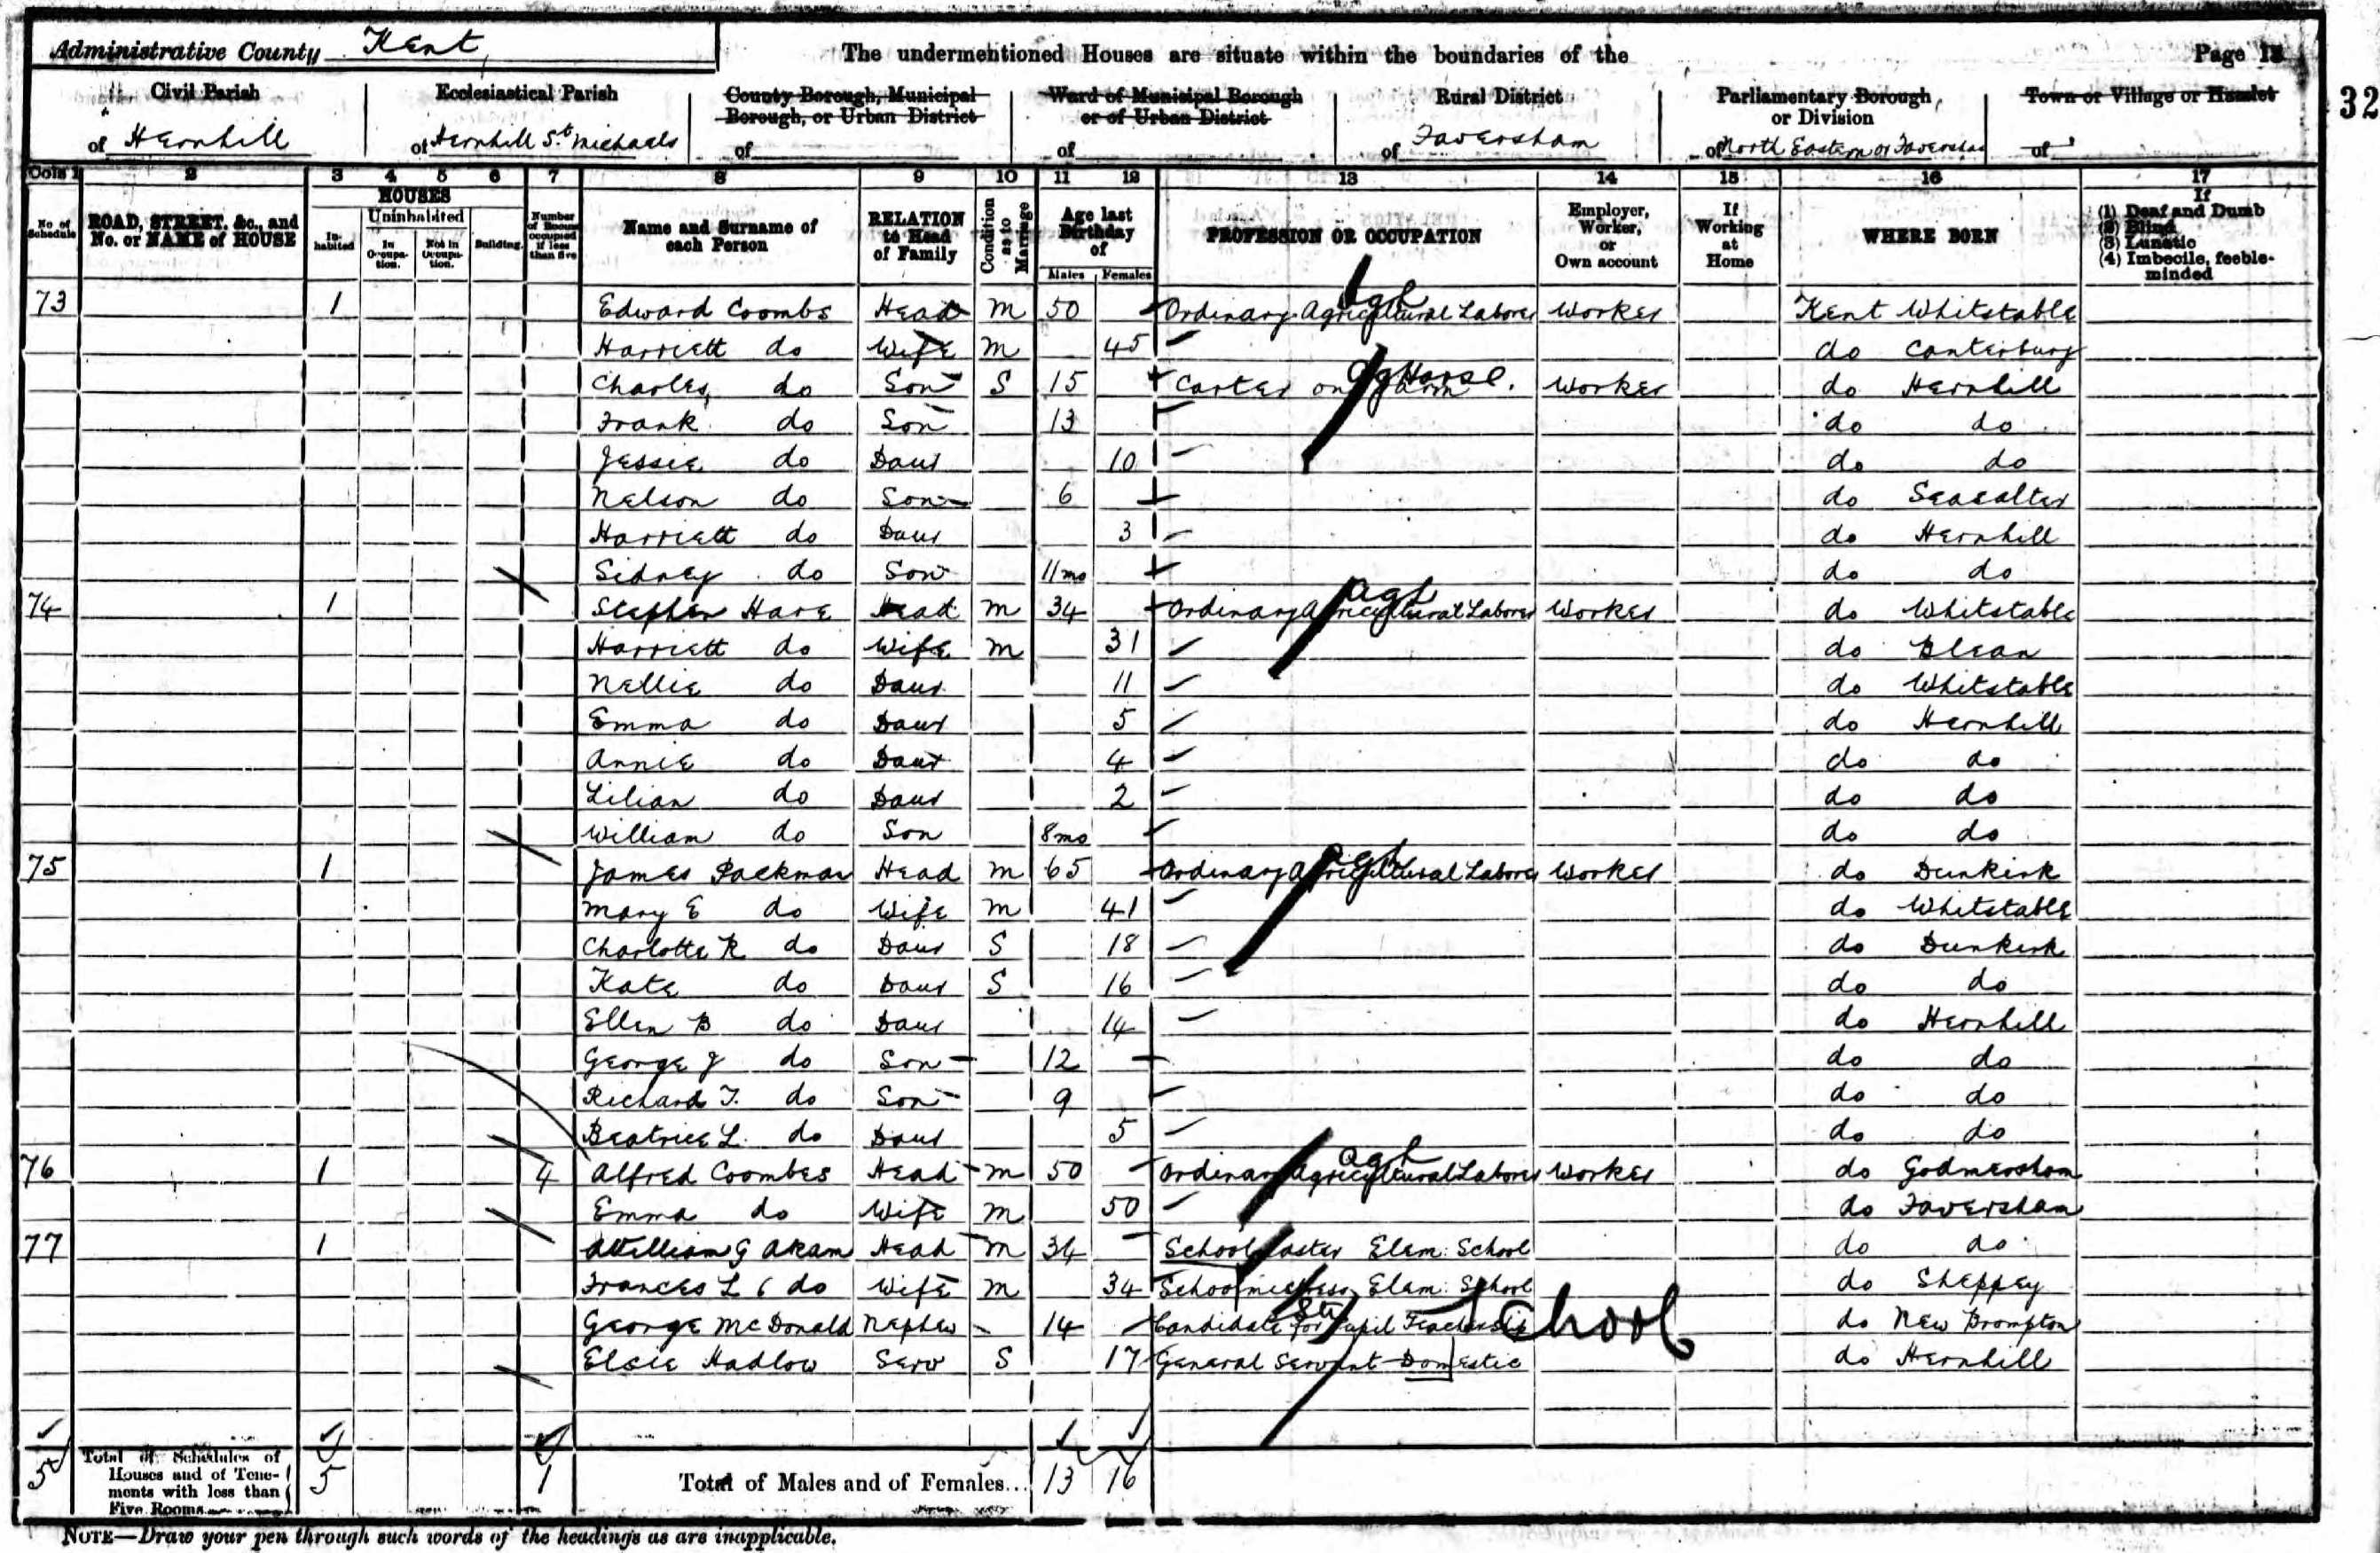 Administrative County Kent The undermentioned Houses are situate within the boundaries of the Page
Civil Parish Ecclesiastical Parish County Borough, Municipal Borough, or Urban District Ward of Municipal Borough or of Urban District Rural District Parliamentary Borough or Division Town or Village or Hamlet 32
of Hernhill of Hernhill St. Michaels of of of Faversham of North Eastern or Faversham of
Cols 1 2 3 4 5 6 7 8 9 10 11 12 13 14 15 16 17
No of Schedule ROAD, STREET, &c., and No. or NAME of HOUSE HOUSES Inhabited Uninhabited In Occupation. Not in Occupation. Building. Number of Rooms occupied if less than five Name and Surname of each Person RELATION to Head of Family Condition as to Marriage Age last Birthday of Males Females PROFESSION OR OCCUPATION Employer, Worker, or Own account If Working at Home WHERE BORN If (1) Deaf and Dumb (2) Blind (3) Lunatic (4) Imbecile, feeble-minded
73 1 Edward Coombs Head M 50 Ordinary Agricultural Laborer Agl Worker Kent Whitstable
Harriett do Wife M 45 do Canterbury
Charles do Son S 15 Carter on Farm Ag Horse. Worker do Hernhill
Frank do Son 13 do do
Jessie do Daur 10 do do
Nelson do Son 6 do Seasalter
Harriett do Daur 3 do Hernhill
Sidney do Son 11mo do do
74 1 Stephen Hare Head M 34 Ordinary Agricultural Laborer Agl Worker do Whitstable
Harriett do Wife M 31 do Blean
Nellie do Daur 11 do Whitstable
Emma do Daur 5 do Hernhill
Annie do Daur 4 do do
Lilian do Daur 2 do do
William do Son 8mo do do
75 1 James Packman Head M 65 Ordinary Agricultural Laborer Agl Worker do Dunkirk
Mary E do Wife M 41 do Whitstable
Charlotte R do Daur S 18 do Dunkirk
Kate do Daur S 16 do do
Ellen B do Daur 14 do Hernhill
George J do Son 12 do do
Richard T. do Son 9 do do
Beatrice L. do Daur 5 do do
76 1 4 Alfred Coombes Head M 50 Ordinary Agricultural Laborer Agl Worker do Godmersham
Emma do Wife M 50 do Faversham
77 1 William G Akam Head M 34 Schoolmaster Elem: School do do
Frances L C do Wife M 34 Schoolmistress Elem: School do Sheppey
George McDonald Nephew 14 Candidate for Pupil Teachership School do New Brompton
Elsie Hadlow Serv S 17 General Servant Domestic do Hernhill
5 Total of Schedules of Houses and of Tenements with less than Five Rooms 5 1 Total of Males and of Females... 13 16
NOTE—Draw your pen through such words of the headings as are inapplicable.